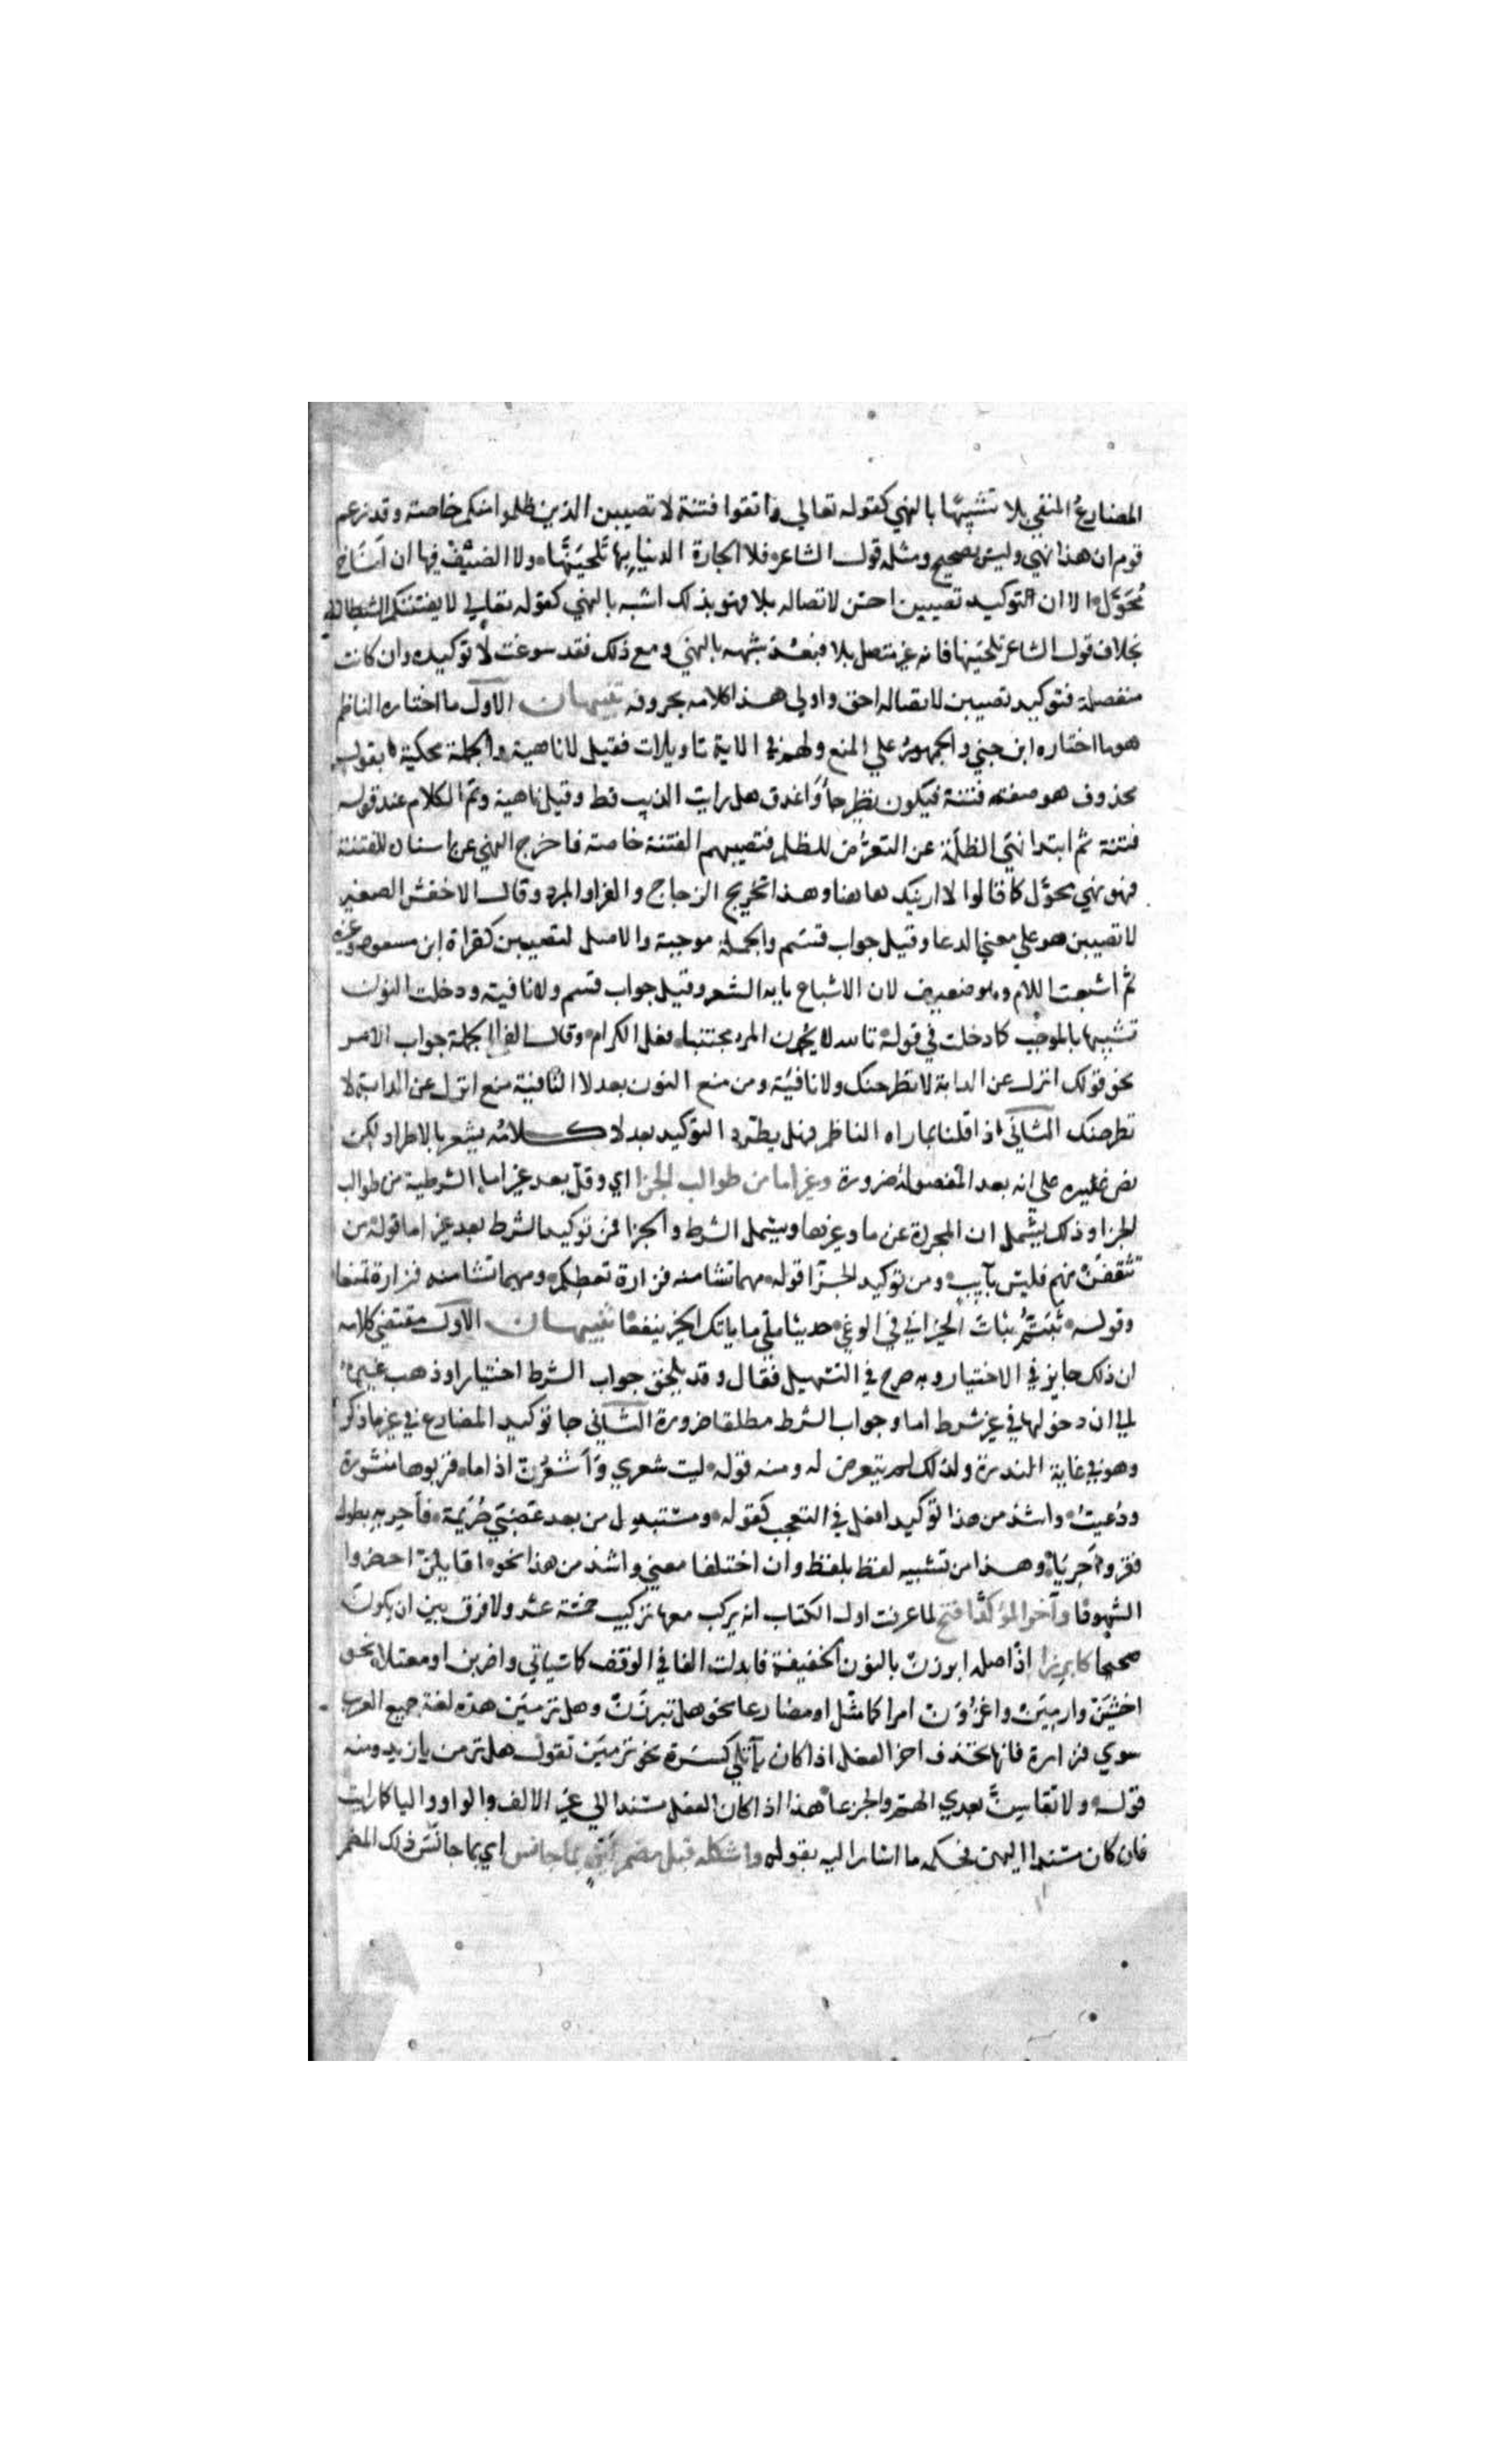 المضارعُ المنفي بلا تشبيهًا بالنهي كقوله تعالي واتقوا فتنة لا تصيبن الذين ظلموا منكم خاصة وقد زعم
قوم ان هذا نهي وليس بصحيح ومثله قول الشاعر فلا الجارة الدنيا بها تلحينَّها ولا الضيف فيها ان اَنَاخ
مُحَوَّل الا ان التوكيد تصيبن احسن لاتصاله بلا فهو بذلك اشبه بالنهي كقوله تعالي لا يفتننكم الشيطان
بخلاف قول الشاعر تلحينها فانه غير متصل بلا فبعد شبهه بالنهي ومع ذلك فقد سوغت لا توكيده وان كانت
منفصلة فتوكيد تصيبن لاتصاله احق واولي هذا كلامه بحروفه تنبيهان الاول ما اختاره الناظم
هو ما اختاره ابن جني والجمهور علي المنع ولهم في الاية تاويلات فقيل لا ناهية والجملة محكية بقول
محذوف هو صفة فتنة فيكون نظير جاوا هل رايت الذيب قط وقيل ناهية وتم الكلام عند قوله
فتنة ثم ابتدا نهي الظلمة عن التعرّض للظلم فتصيبهم الفتنة خاصة فاخرج النهي عن اسناده للفتنة
فهو نهي محوّل كما قالوا لا ارينك هاهنا وهذا تخريج الزجاج والفرا والمبرد وقال الاخفش الصغير
لا تصيبن هو علي معني الدعا وقيل جواب قسم والجملة موجبة والاصل لتصيبن كقراة ابن مسعود وغيره
ثم اشبعت اللام وهو ضعيف لان الاشباع بابه الشعر وقيل جواب قسم ولا نافية ودخلت النون
تشبيها بالموجب كما دخلت في قوله تالله لا يُحمدن المرء مجتنبا فعل الكرام وقال الفرا الجملة جواب الامر
نحو قولك انزل عن الدابة لا تطرحنك ولا نافية ومن منع النون بعد لا النافية منع انزل عن الدابة لا
تطرحنك الثاني اذا قلنا بما راه الناظم فهل يطّرد التوكيد بعد لا كلامه يشعر بالاطراد لكن
نص غيره علي انه بعد المفصولة ضرورة وغير اما من طوالب الجزا اي وقلّ بعد غير اما الشرطية من طوالب
الجزا وذلك يشمل ان المجردة عن ما وغيرها ويشمل الشرط والجزا فمن توكيد الشرط بعد غير اما قوله من
تثقفن منهم فليس بآيب ومن توكيد الجزا قوله مهما تشا منه فزارة تعطكم ومهما تشا منه فزارة تمنعا
وقوله نَبَتّمُ نبات الخيزراني في الوغي حديثا متي ما ياتك الخير ينفعا تنبيهان الاول مقتضي كلامه
ان ذلك جايز في الاختيار وبه صرح في التسهيل فقال وقد يلحق جواب الشرط اختيارا وذهب غيره
الي ان دخولها في غير شرط اما وجواب الشرط مطلقا ضرورة الثاني جا توكيد المضارع في غير ما ذكر
وهو في غاية الندرة ولذلك لم يتعرض له ومنه قوله ليت شعري وأشعُرنّ اذا ما قربوها منشورة
ودُعيتُ واشذ من هذا توكيد افعل في التعجب كقوله ومستبدل من بعد غضبي صُرَيمة فأحر به بطول
فقر وأحريا وهذا من تشبيه لفظ بلفظ وان اختلفا معني واشذ من هذا نحوه اقايلنّ احضروا
الشهودا وآخر المؤكد افتح لما عرفت اول الكتاب انه يركب معها تركيب خمسة عشر ولا فرق بين ان يكون
صحيحا كابرزا اذ اصله ابرزن بالنون الخفيفة فابدلت الفا في الوقف كما سياتي واضربن او معتلا نحو
اخشين وارمين واغزُوَن امرا كما مثّل او مضارعا نحو هل تبرزَنّ وهل ترمينّ هذه لغة جميع العرب
سوي فزارة فانها تحذف اخر الفعل اذا كان يآ تلي كسرة نحو ترمين تقول هل ترمن يا زيد ومنه
قوله ولا تقاسِنّ بعدي الهمّ والجزعا هذا اذا كان الفعل مسندا الي غير الالف والواو واليا كما رايت
فان كان مسندا اليهن فحكمه ما اشار اليه بقوله واشكله قبل مضمر لين بما جانس اي بما جانَس ذلك المضمر